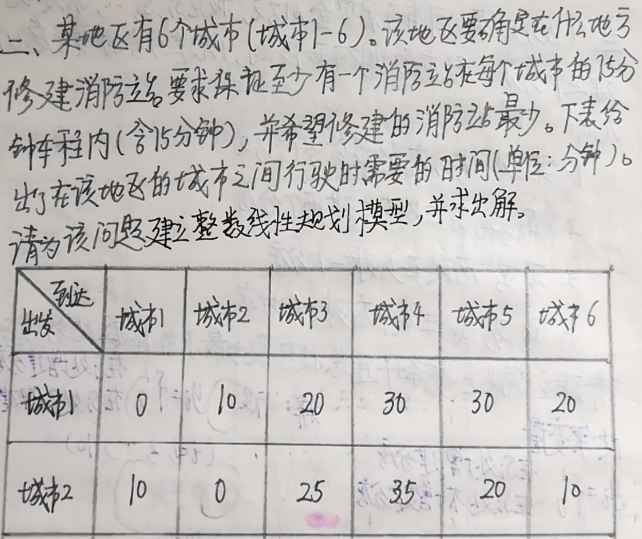 二、某地区有6个城市(城市1-6)。该地区要确定在什么地方
修建消防站。要求保证至少有一个消防站在每个城市的15分
钟车程内(含15分钟),并希望修建的消防站最少。下表给
出了在该地区的城市之间行驶时需要的时间(单位:分钟)。
请为该问题建立整数线性规划模型,并求出解。
到达
出发 城市1 城市2 城市3 城市4 城市5 城市6
城市1 0 10 20 30 30 20
城市2 10 0 25 35 20 10